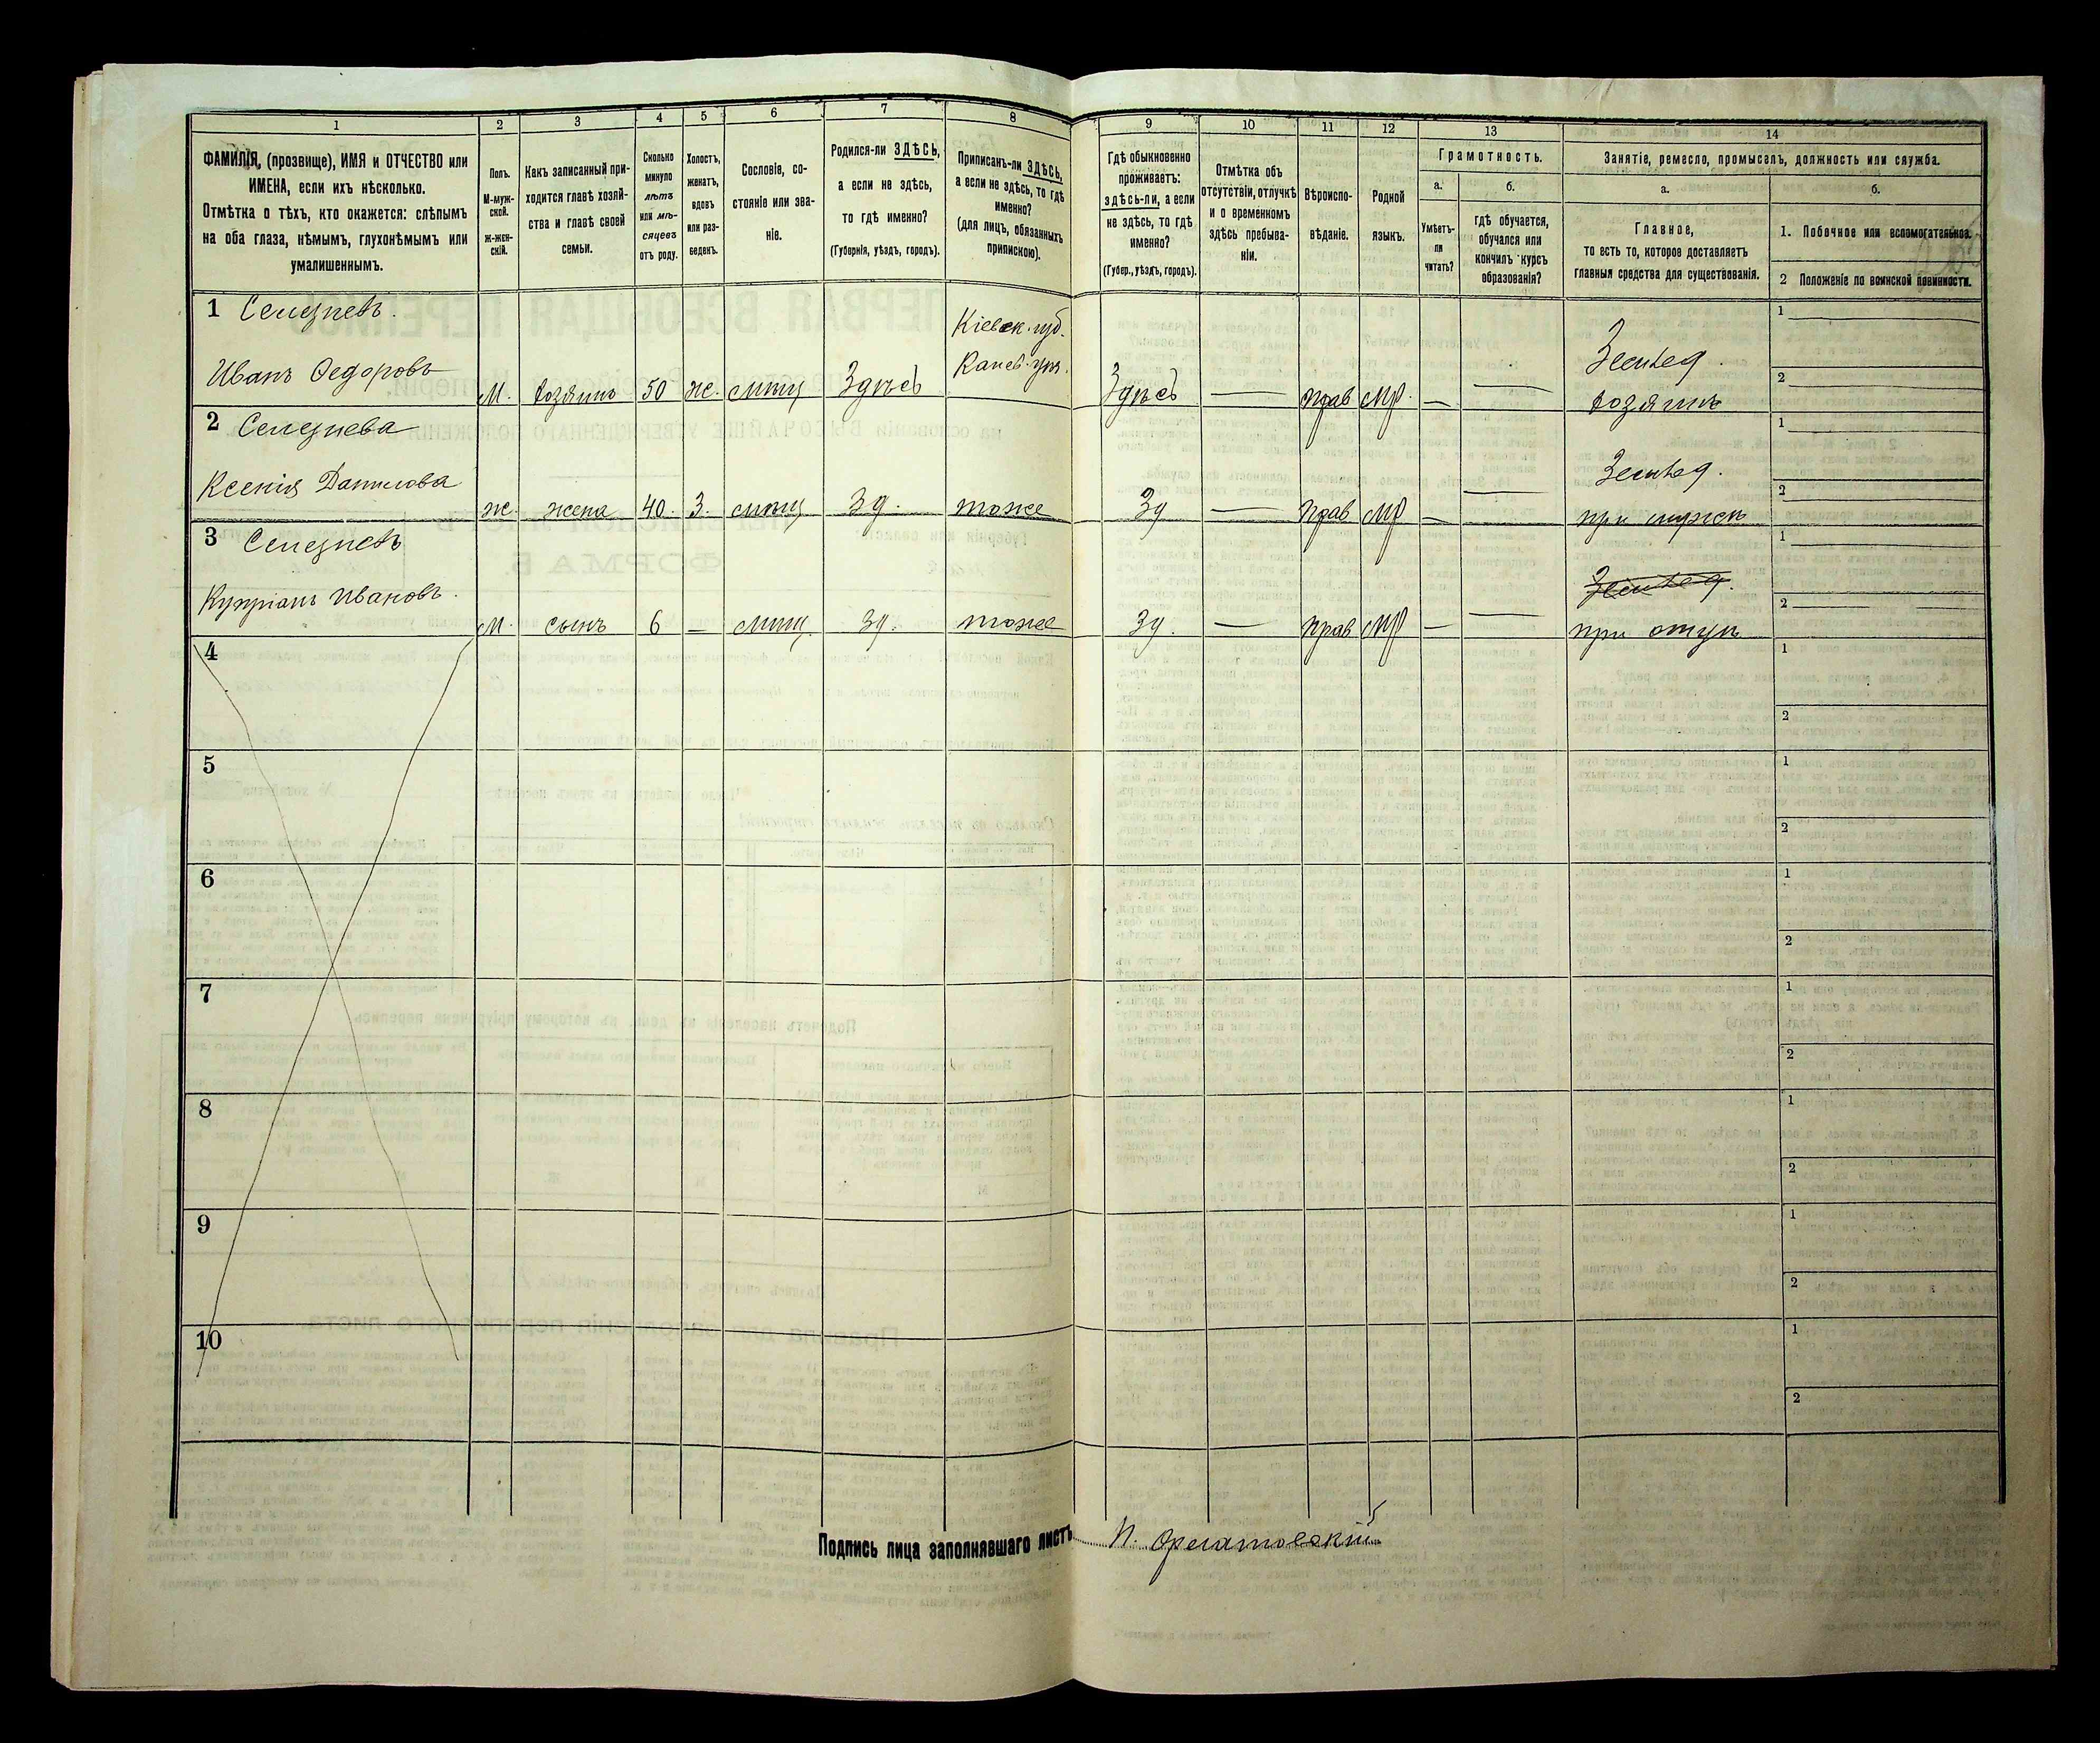 1
2
3
4
5
6
7
8
9
10
11
12
13
14
ФАМИЛІЯ, (прозвище), ИМЯ и ОТЧЕСТВО или
ИМЕНА, если ихъ нѣсколько.
Отмѣтка о тѣхъ, кто окажется: слѣпымъ
на оба глаза, нѣмымъ, глухонѣмымъ или
умалишеннымъ.
Полъ.
М-муж-
ской.
ж-жен-
скій.
Какъ записанный при-
ходится главѣ хозяй-
ства и главѣ своей
семьи.
Сколько
минуло
лѣтъ
или мѣ-
сяцевъ
отъ роду.
Холостъ,
женатъ,
вдовъ
или раз-
веденъ.
Сословіе, со-
стояніе или зва-
ніе.
Родился-ли ЗДѢСЬ,
а если не здѣсь,
то гдѣ именно?
(Губернія, уѣздъ, городъ).
Приписанъ-ли ЗДѢСЬ,
а если не здѣсь, то гдѣ
именно?
(для лицъ, обязанныхъ
припискою).
Гдѣ обыкновенно
проживаетъ:
здѣсь-ли, а если
не здѣсь, то гдѣ
именно?
(Губер., уѣздъ, городъ).
Отмѣтка объ
отсутствіи, отлучкѣ
и о временномъ
здѣсь пребыва-
ніи.
Вѣроиспо-
вѣданіе.
Родной
языкъ.
Грамотность.
а.
Умѣетъ-
ли
читать?
б.
гдѣ обучается,
обучался или
кончилъ курсъ
образованія?
Занятіе, ремесло, промыселъ, должность или служба.
а.
Главное,
то есть то, которое доставляетъ
главныя средства для существованія.
б.
1. Побочное или вспомогательное.
2 Положеніе по воинской повинности.
1 Селезневъ.
Кіевск. губ.
Иванъ Федоровъ М. хозяинъ 50 ж. Здѣсь Канев. уѣз. Здѣсь — прав мр. — — Землед.
хозяинъ
1
2
2 Селезнева
Ксенія Данилова ж. жена 40. З. Зд. тоже Зд — прав мр — — Землед.
при мужѣ
1
2
3 Селезневъ
Купріанъ Ивановъ. М. сынъ 6 — Зд. тоже Зд. — прав мр — — Землед.
при отцѣ
1
2
4
1
2
5
1
2
6
1
2
7
1
2
8
1
2
9
1
2
10
1
2
Подпись лица заполнявшаго листъ